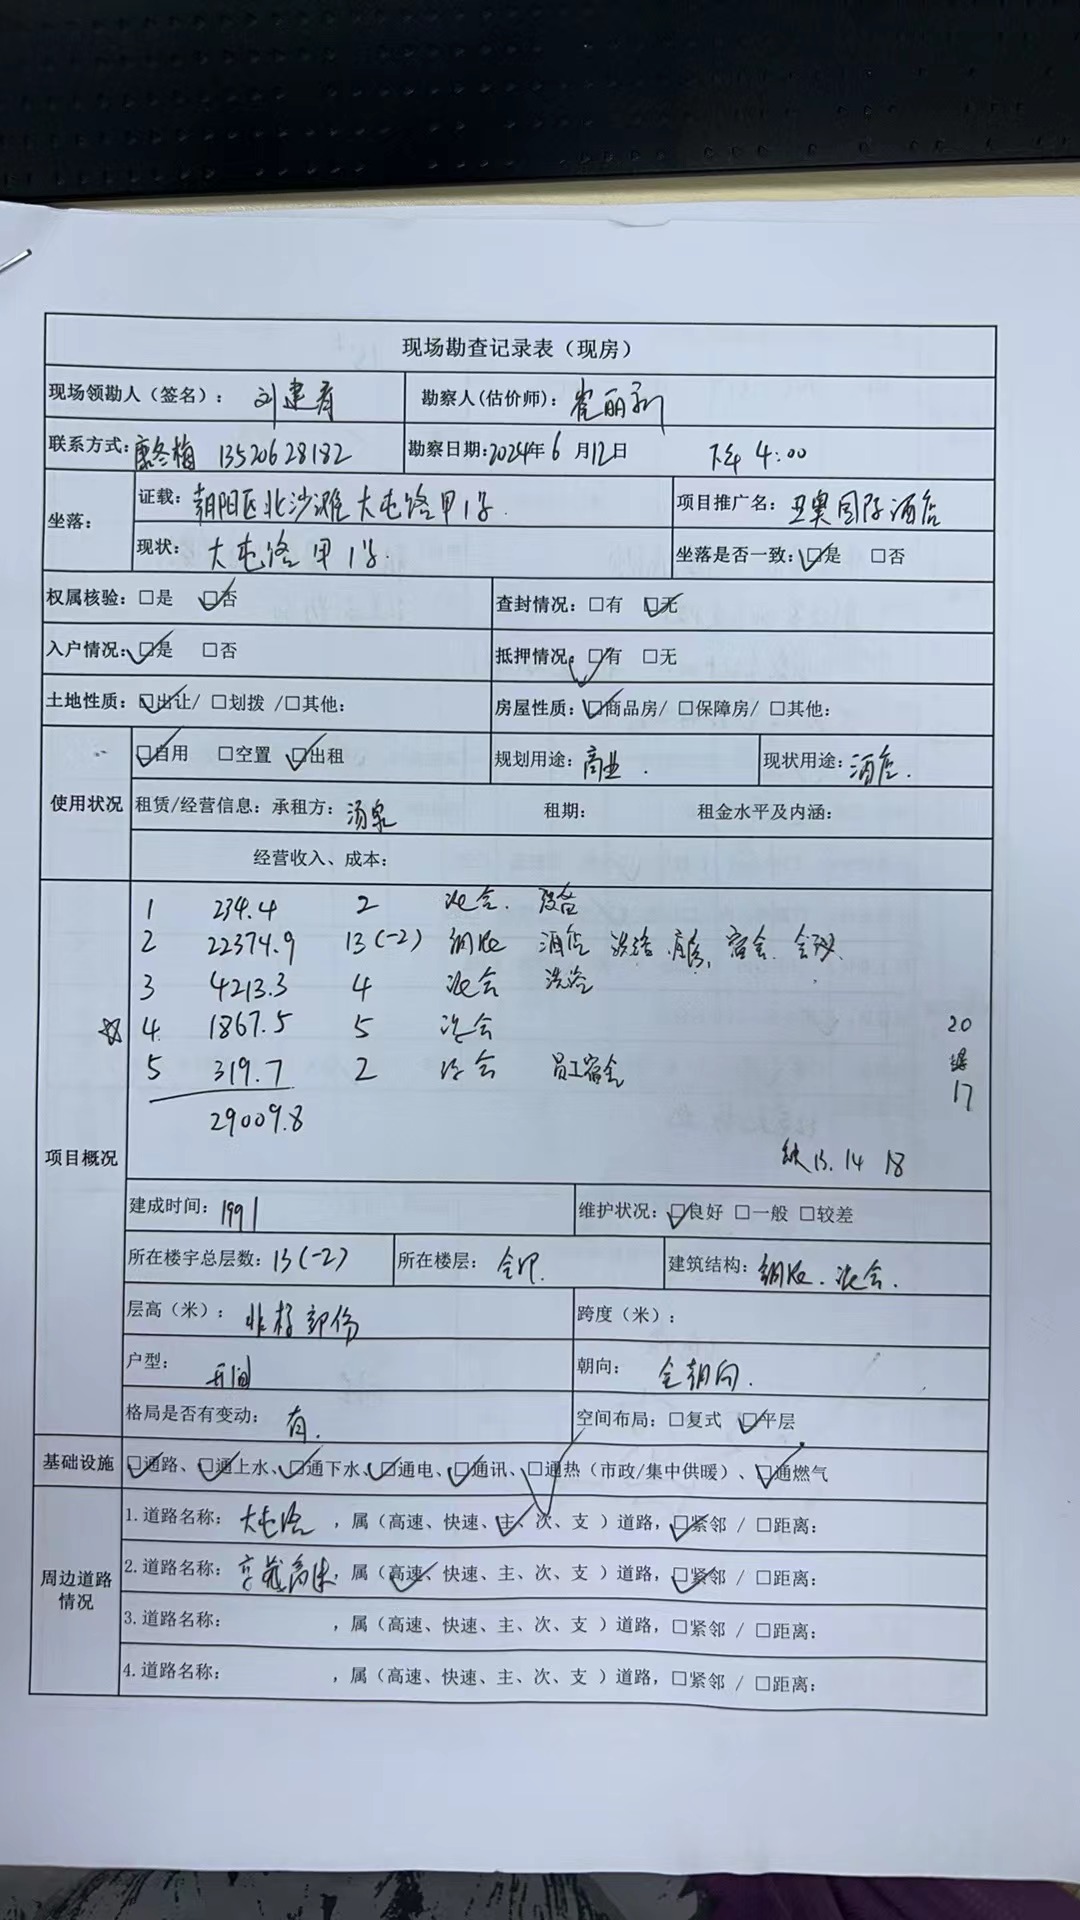 现场勘查记录表（现房）
现场领勘人（签名）： 刘建青 勘察人(估价师)： 崔丽利
联系方式： 唐冬梅 13520628182 勘察日期：2024年6月12日 下午 4:00
坐落： 证载：朝阳区北沙滩大屯路甲1号. 项目推广名：亚奥国际酒店
现状： 大屯路甲1号. 坐落是否一致：☑是 □否
权属核验：□是 ☑否 查封情况：□有 ☑无
入户情况：☑是 □否 抵押情况：☑有 □无
土地性质：☑出让/ □划拨 /□其他： 房屋性质：☑商品房/ □保障房/ □其他：
使用状况 ☑自用 □空置 ☑出租 规划用途：商业. 现状用途：酒店.
租赁/经营信息：承租方：汤泉 租期： 租金水平及内涵：
经营收入、成本：
项目概况
1 234.4 2 混合. 设备
2 22374.9 13(-2) 钢混 酒店 洗浴 宿舍. 会议
3 4213.3 4 混合 洗浴
☆ 4. 1867.5 5 混合 20
5 319.7 2 混合 员工宿舍 17
29009.8
缺13. 14 18
建成时间：1991 维护状况：☑良好 □一般 □较差
所在楼宇总层数：13(-2) 所在楼层：全部. 建筑结构：钢混. 混合.
层高（米）： 非标部份 跨度（米）：
户型： 开间 朝向： 全朝向.
格局是否有变动： 有. 空间布局：□复式 ☑平层
基础设施 ☑通路、☑通上水、☑通下水、☑通电、☑通讯、☑通热（市政/集中供暖）、☑通燃气
周边道路情况 1.道路名称：大屯路，属（高速、快速、主✓、次、支 ）道路，☑紧邻 / □距离：
2.道路名称：京藏高速，属（高速✓、快速、主、次、支 ）道路，☑紧邻 / □距离：
3.道路名称： ，属（高速、快速、主、次、支 ）道路，□紧邻 / □距离：
4.道路名称： ，属（高速、快速、主、次、支 ）道路，□紧邻 / □距离：